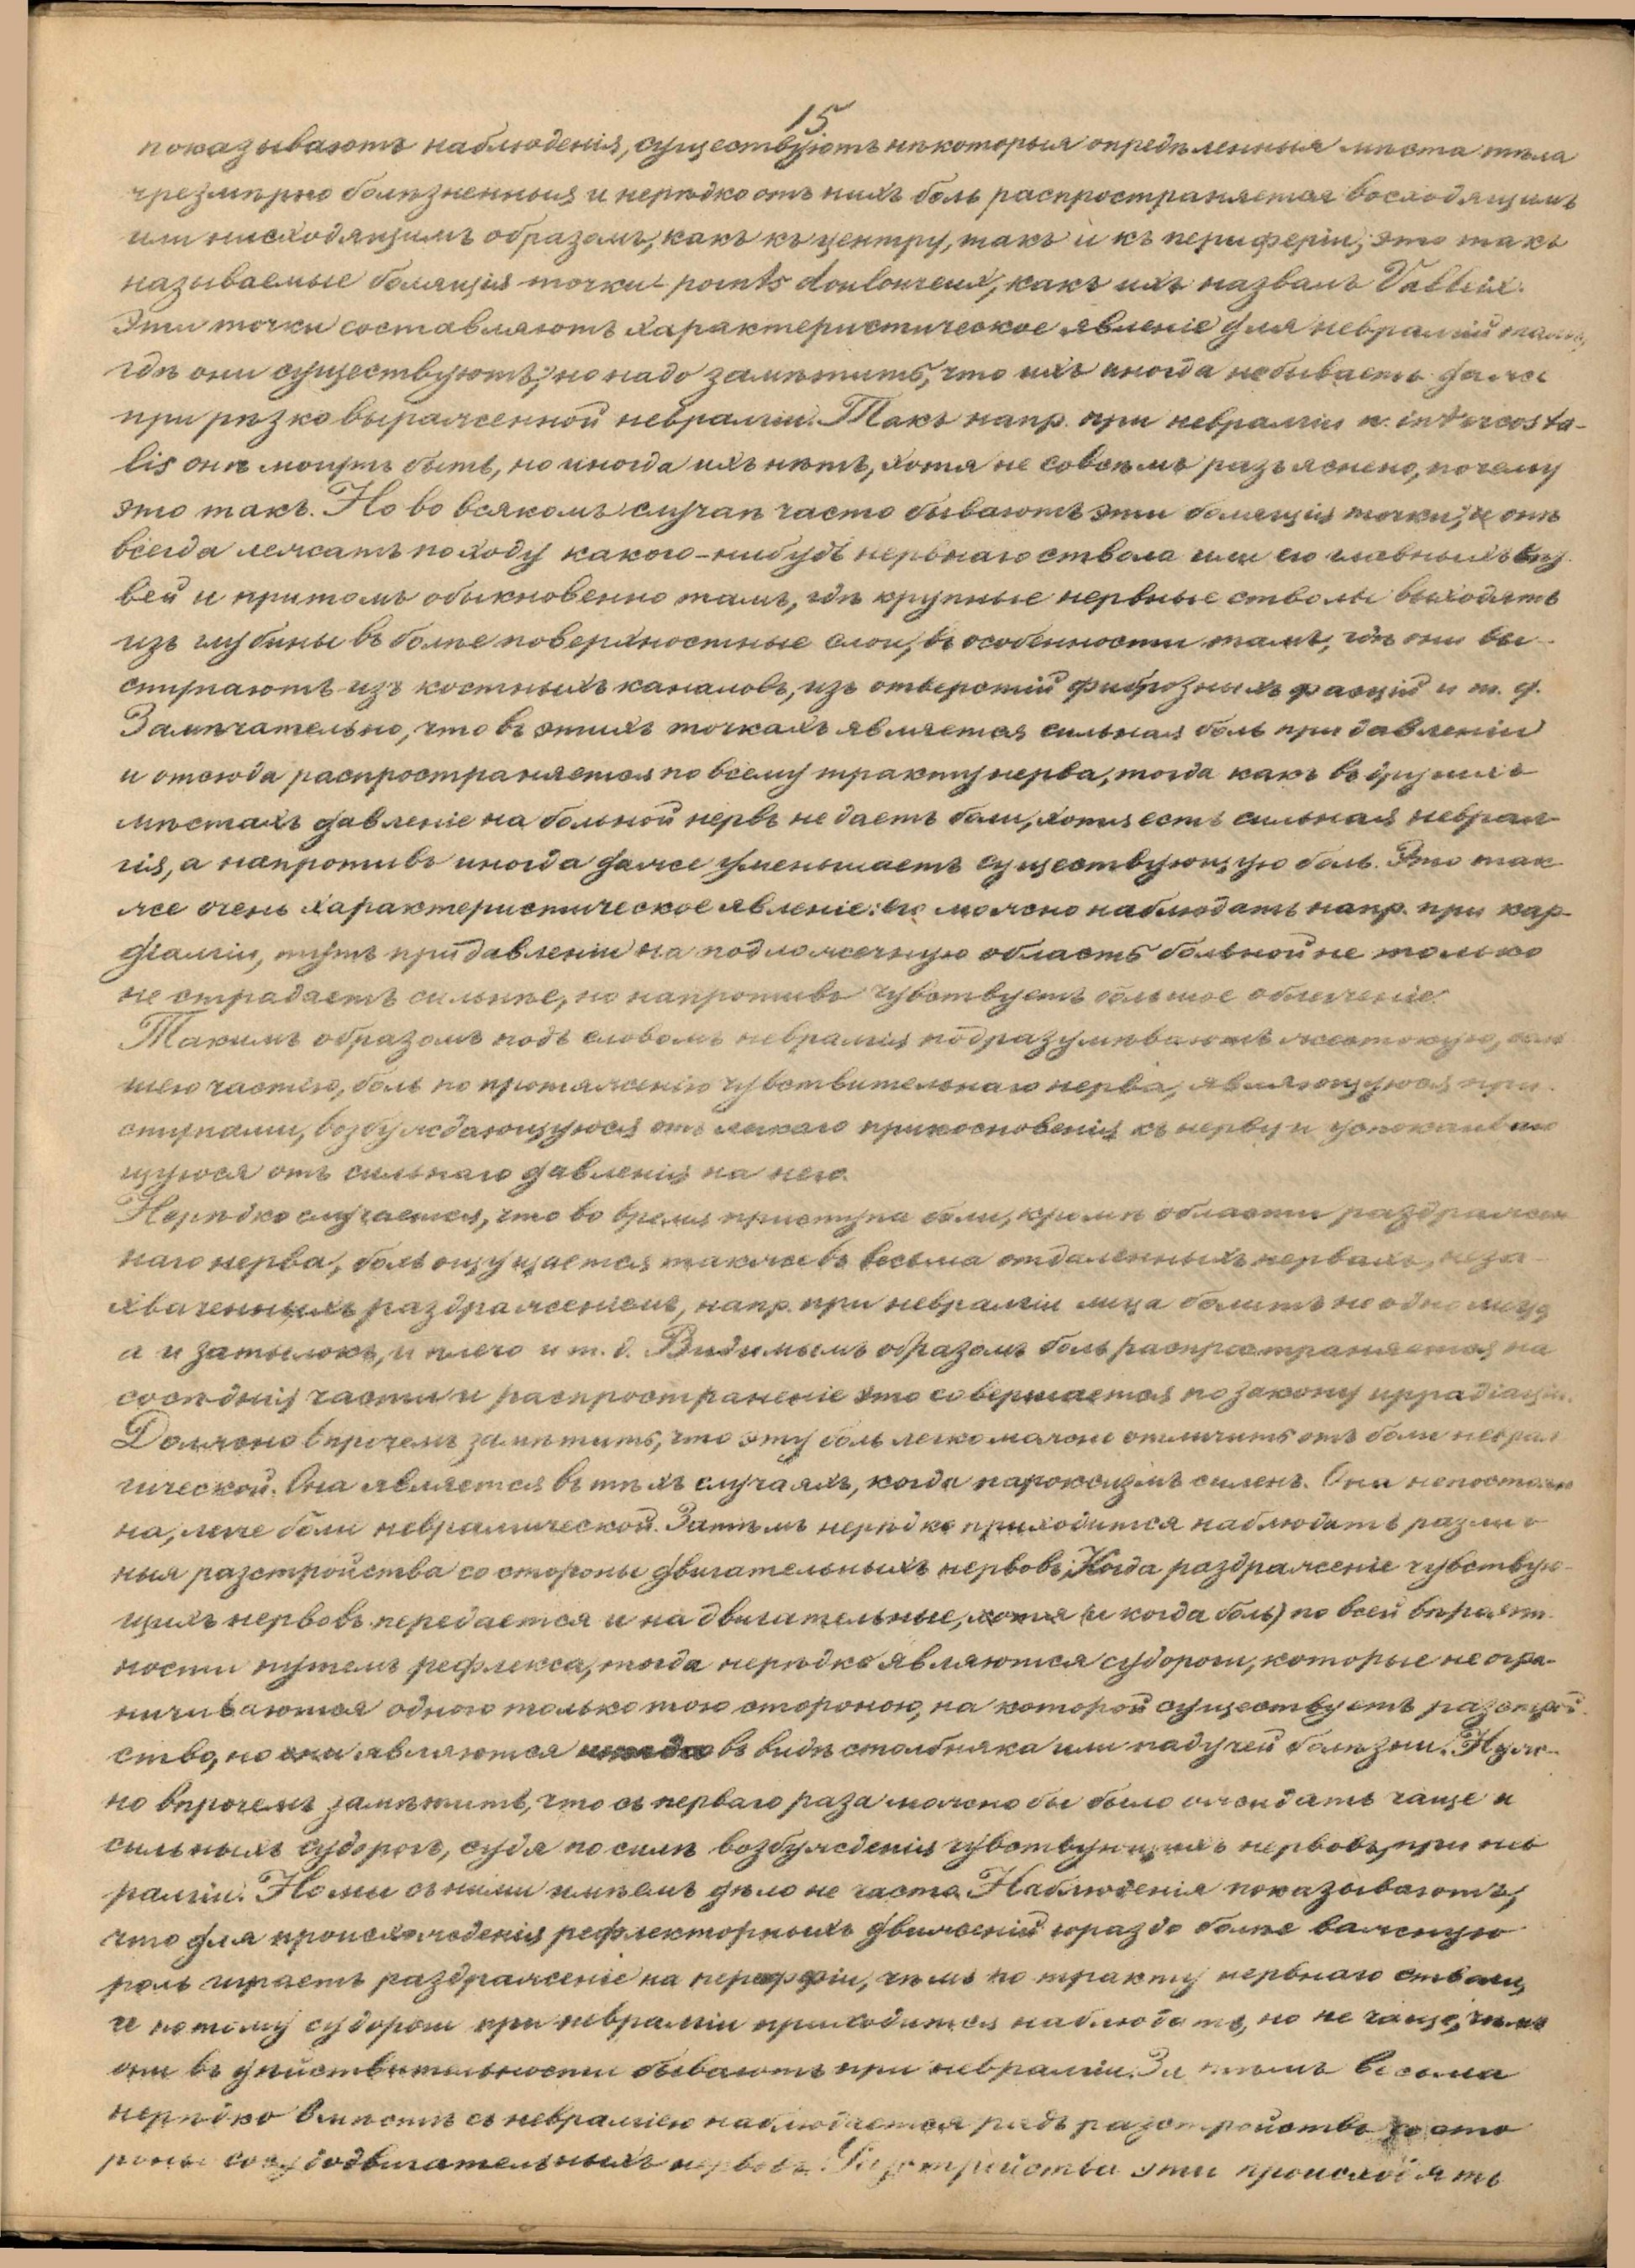 15
показываютъ наблюденія, существуютъ нѣкоторыя опредѣленныя мѣста тѣла
чрезмѣрно болѣзненныя и нерѣдко отъ нихъ боль распространяется восходящимъ
или нисходящимъ образомъ, какъ къ центру, такъ и къ периферіи; это такъ
называемые болящія точки points douloureux, какъ ихъ назвалъ Valleix.
Эти точки составляютъ характеристическое явленіе для невралгій тамъ,
гдѣ они существуютъ; но надо замѣтить, что ихъ иногда небываетъ даже
при рѣзко выраженной невралгіи. Такъ напр. при невралгіи n. intercosta-
lis онѣ могутъ быть, но иногда ихъ нѣтъ, хотя не совсѣмъ разъяснено, почему
это такъ. Но во всякомъ случаѣ часто бываютъ эти болящія точки, и онѣ
всегда лежатъ по ходу какого-нибудь нервнаго ствола или его главныхъ вѣт-
вей и притомъ обыкновенно тамъ, гдѣ крупные нервные стволы выходятъ
изъ глубины въ болѣе поверхностные слои, въ особенности тамъ, гдѣ они вы-
ступаютъ изъ костныхъ каналовъ, изъ отверстій фиброзныхъ фасцій и т. д.
Замѣчательно, что въ этихъ точкахъ является сильная боль при давленіи
и отсюда распространяется по всему тракту нерва, тогда какъ въ другихъ
мѣстахъ давленіе на больной нервъ не даетъ боли, хотя есть сильная неврал-
гія, а напротивъ иногда даже уменьшаетъ существующую боль. Это так
же очень характеристическое явленіе: его можно наблюдать напр. при кар-
діалгіи, тутъ при давленіи на подложечную область больной не только
не страдаетъ сильнѣе, но напротивъ чувствуетъ большое облегченіе.
Такимъ образомъ подъ словомъ невралгія подразумѣваютъ жестокую, боль
шею частію, боль по протяженію чувствительнаго нерва, являющуюся при-
ступами, возбуждающуюся отъ легкаго прикосновенія къ нерву и успокаиваю
щуюся отъ сильнаго давленія на него.
Нерѣдко случается, что во время приступа боли, кромѣ области раздражен
наго нерва, боль ощущается также въ весьма отдаленныхъ нервахъ, неза-
хваченныхъ раздраженіемъ, напр. при невралгіи лица болитъ не одно лицо,
а и затылокъ, и плечо и т. д. Видимымъ образомъ боль распространяется на
сосѣднія части и распространеніе это совершается по закону иррадіаціи.
Должно впрочемъ замѣтить, что эту боль легко можно отличить отъ боли неврал
гической. Она является въ тѣхъ случаяхъ, когда пароксизмъ силенъ. Она непостоян
на, легче боли невралгической. Затѣмъ нерѣдко приходится наблюдать различ
ныя разстройства со стороны двигательныхъ нервовъ. Когда раздраженіе чувствую-
щихъ нервовъ передается и на двигательные, хотя (и когда боль) по всей вѣроят-
ности путемъ рефлекса, тогда нерѣдко являются судороги, которые не огра-
ничиваются одною только тою стороною, на которой существуетъ разстрой-
ство, но они являются иногда въ видѣ столбняка или падучей болѣзни. Нуж-
но впрочемъ замѣтить, что съ перваго раза можно бы было ожидать чаще и
сильныхъ судорогъ, судя по силѣ возбужденія чувствующихъ нервовъ, при нев
ралгіи. Но мы съ ними имѣемъ дѣло не часто. Наблюденія показываютъ,
что для происхожденія рефлекторныхъ движеній гораздо болѣе важную
роль играетъ раздраженіе на периферіи, чѣмъ по тракту нервнаго ствола,
и потому судороги при невралгіи приходится наблюдать, но не чаще, чѣмъ
они въ дѣйствительности бываютъ при невралгіи. За тѣмъ весьма
нерѣдко вмѣстѣ съ невралгіею наблюдается рядъ разстройствъ со сто
роны сосудодвигательныхъ нервовъ. Разстройства эти происходятъ